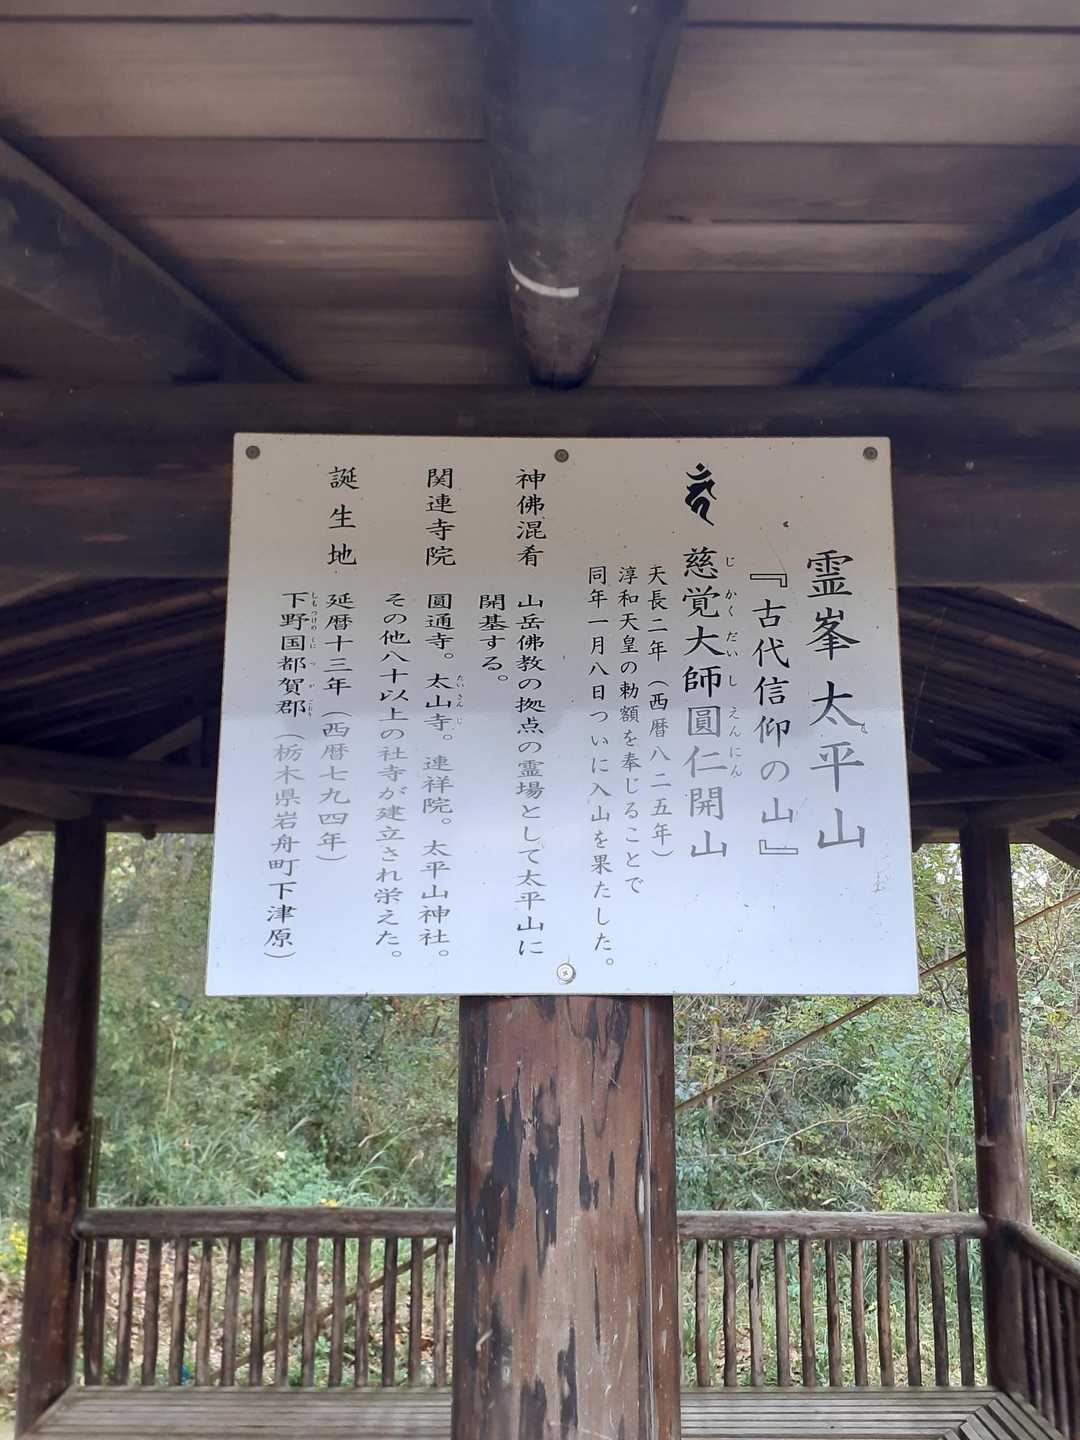 霊峯 太平山
『古代信仰の山』
慈覚大師圓仁開山
じかくだいしえんにん
天長二年（西暦八二五年）
淳和天皇の勅額を奉じることで
同年一月八日ついに入山を果たした。
神佛混肴 山岳佛教の拠点の霊場として太平山に
開基する。
関連寺院 圓通寺。太山寺。連祥院。太平山神社。
たいさんじ
その他八十以上の社寺が建立され栄えた。
誕生地 延暦十三年（西暦七九四年）
下野国都賀郡（栃木県岩舟町下津原）
しもつけのくにつがごおり